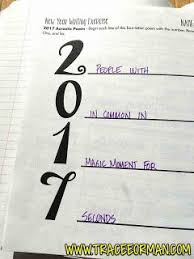 New Year Writing Exercise
2017 Acrostic Poem - Begin each line of the four-lined poem with the number
2 PEOPLE WITH
0 IN COMMON IN
1 MAGIC MOMENT FOR
7 SECONDS
WWW.TRACEEORMAN.COM